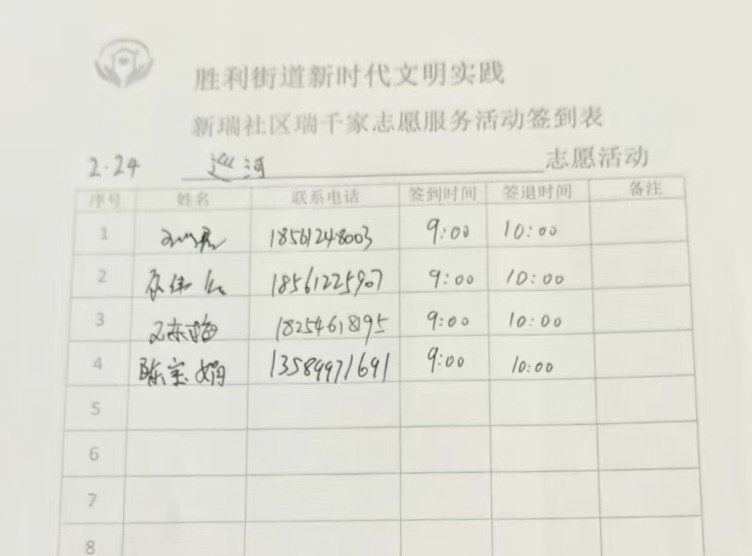 胜利街道新时代文明实践
新瑞社区瑞千家志愿服务活动签到表
2.24 巡河 志愿活动
序号 姓名 联系电话 签到时间 签退时间 备注
1 18561248003 9:00 10:00
2 18561225907 9:00 10:00
3 18254618195 9:00 10:00
4 陈宝娟 13589971691 9:00 10:00
5
6
7
8